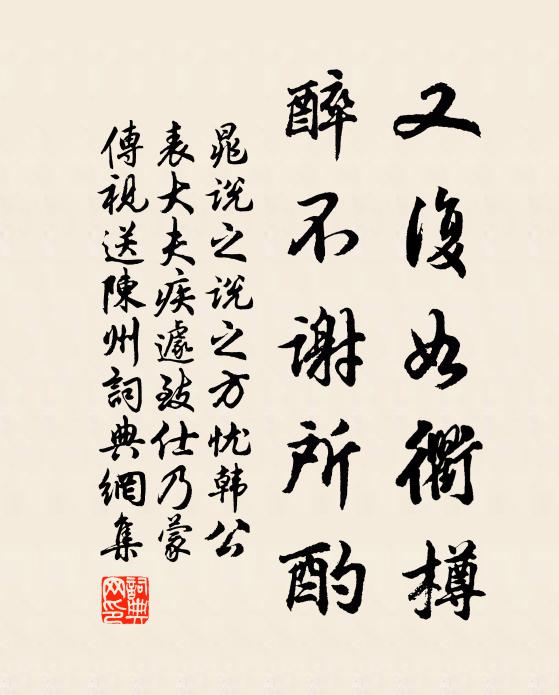 又復如衢樽
醉不謝所酌
晁说之说之方忧韩公
表大夫疾遽致仕乃蒙
傳視送陳州詞典網集
詞典网印